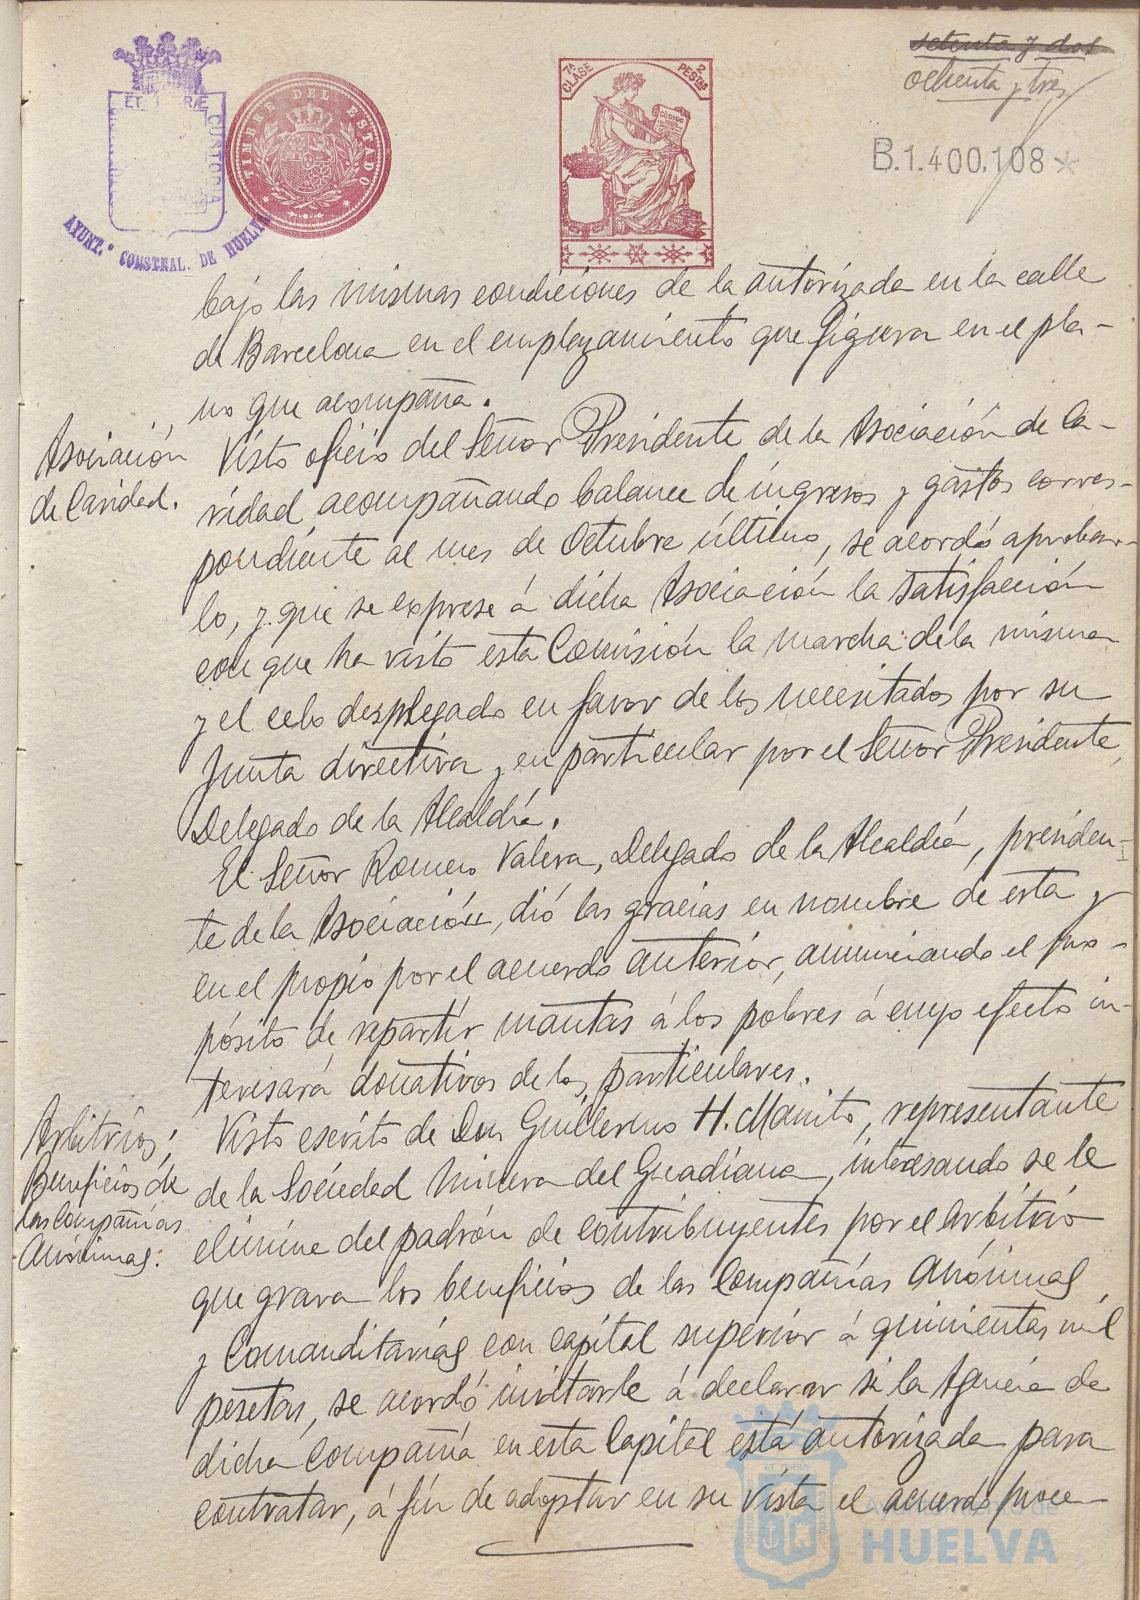 setenta y dos
ochenta y tres
ET TERRÆ CUSTODIA
AYUNT.º CONSTNAL. DE HUELVA
TIMBRE DEL ESTADO
7ª CLASE
2 PESTAS
CÓDIGO
B.1.400.108*
bajo las mismas condiciones de la autorizada en la calle
de Barcelona en el emplazamiento que figura en el pla-
no que acompaña.
Asociación
de Caridad.
Visto oficio del Señor Presidente de la Asociación de Ca-
ridad, acompañando balance de ingresos y gastos corres-
pondiente al mes de Octubre último, se acordó aprobar-
lo, y que se exprese á dicha Asociación la satisfacción
con que ha visto esta Comisión la marcha de la misma
y el celo desplegado en favor de los necesitados por su
Junta directiva y en particular por el Señor Presidente,
Delegado de la Alcaldía.
El Señor Romero Valera, Delegado de la Alcaldía, presiden-
te de la Asociación, dió las gracias en nombre de esta y
en el propio por el acuerdo anterior, anunciando el pro-
pósito de repartir mantas á los pobres á cuyo efecto in-
teresará donativos de los particulares.
Arbitrios;
Beneficios de
las Compañías
Anónimas.
Visto escrito de Don Guillermo H. Manito, representante
de la Sociedad Minera del Guadiana, interesando se le
elimine del padrón de contribuyentes por el arbitrio
que grava los beneficios de las Compañías Anónimas
y Comanditarias con capital superior á quinientas mil
pesetas, se acordó invitarle á declarar si la Agencia de
dicha Compañía en esta Capital está autorizada para
contratar, á fin de adoptar en su vista el acuerdo proce-
Ayuntamiento de
HUELVA